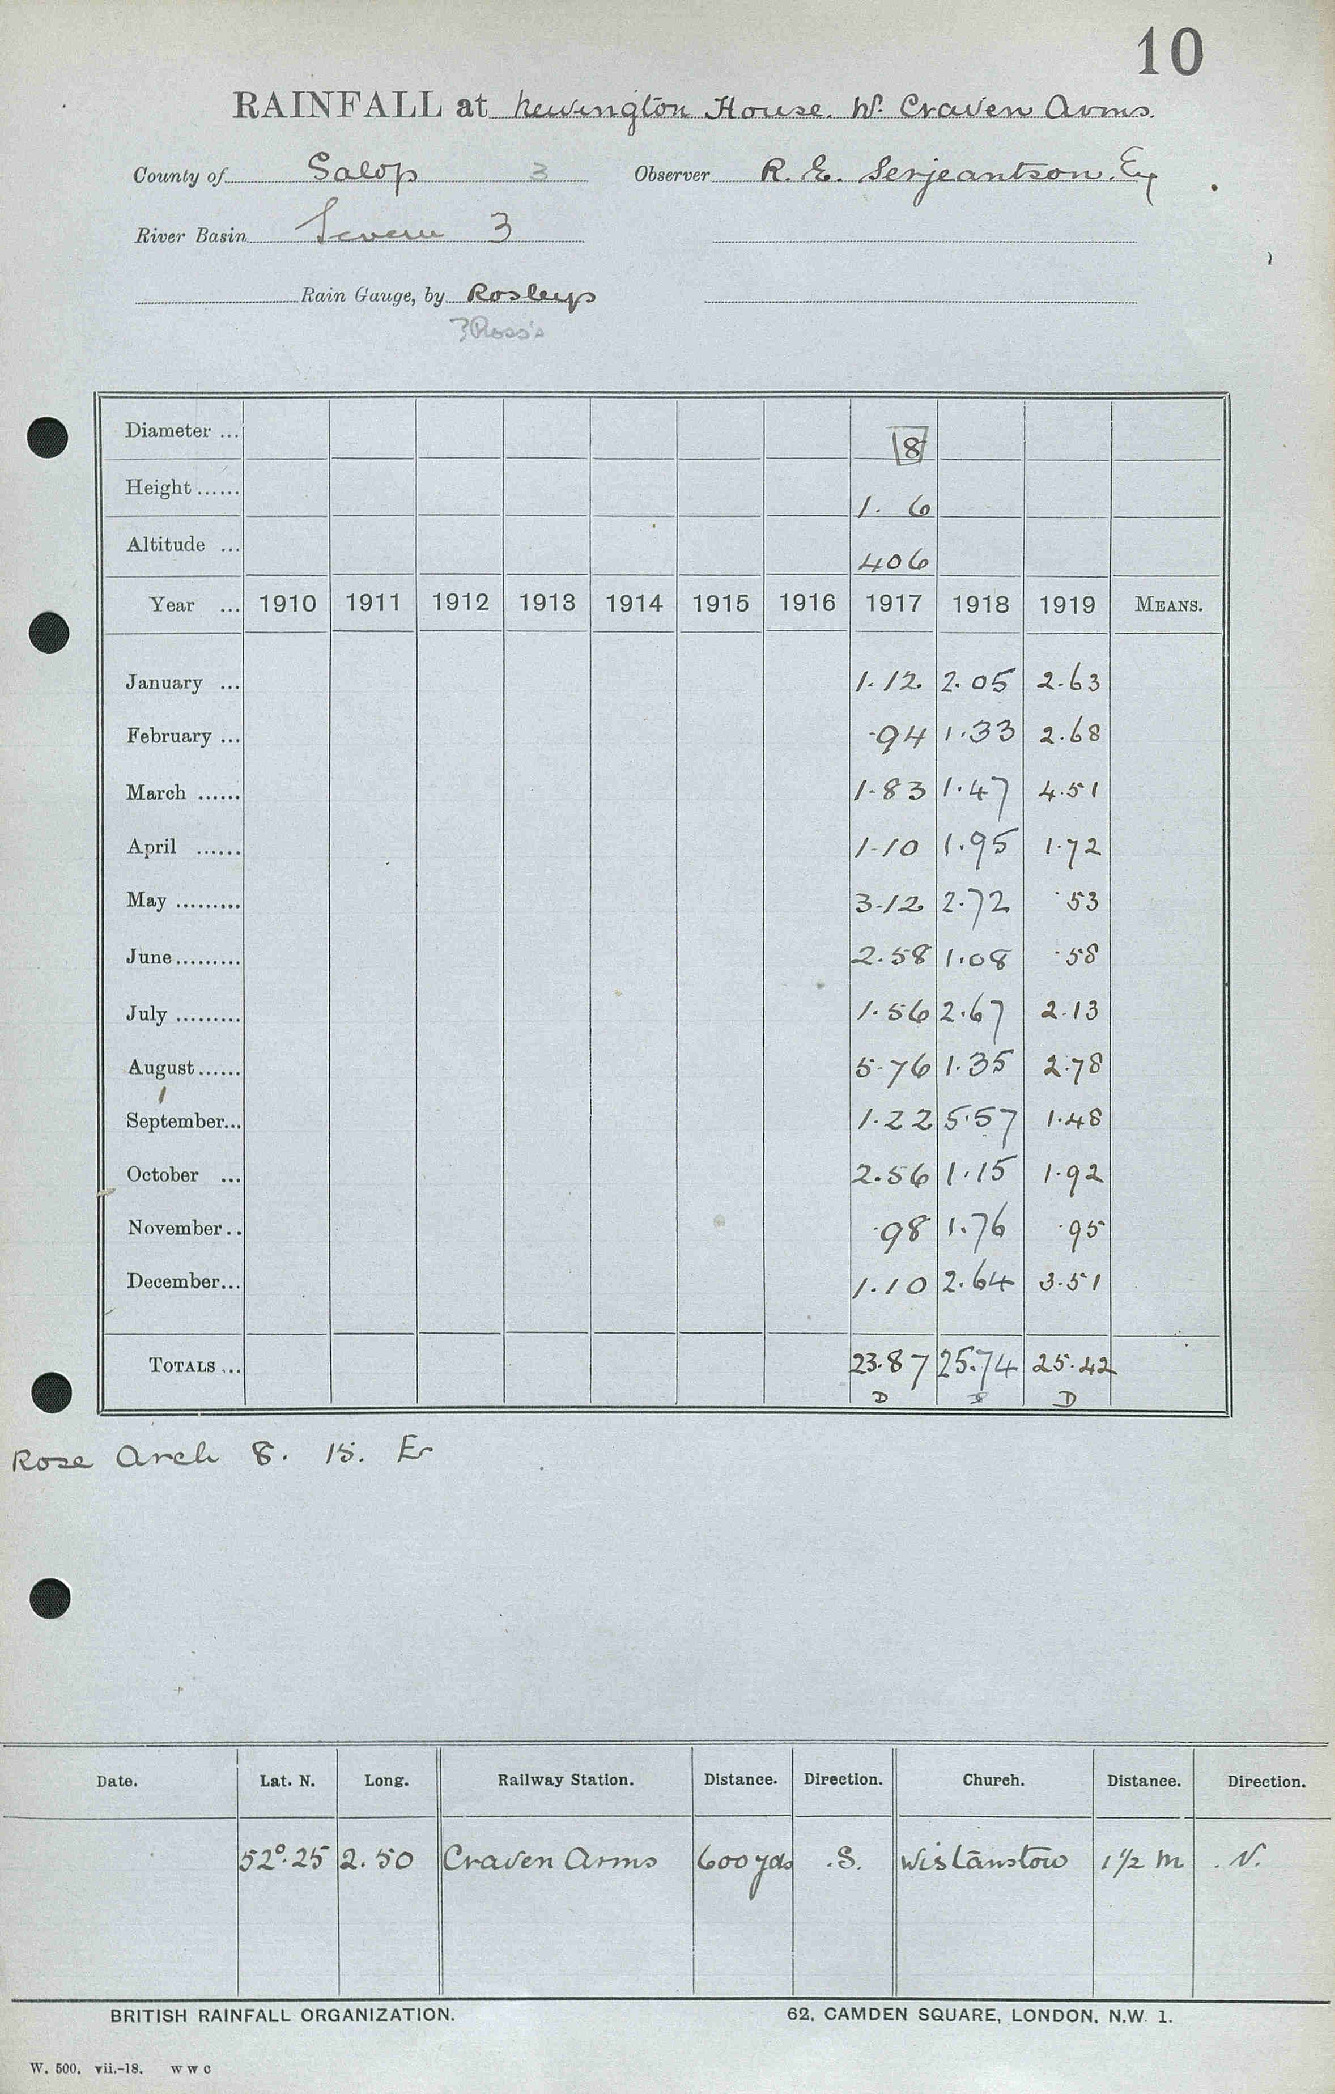 10
RAINFALL at Newington House. W. Craven Arms.
County of Salop 3 Observer R. E. Serjeantson. Esq
River Basin Severn 3
Rain Gauge, by
Diameter ... 8
Height ...... 1. 6
Altitude ... 406
Year ... 1910 1911 1912 1913 1914 1915 1916 1917 1918 1919 MEANS.
January ... 1.12 2.05 2.63
February ... .94 1.33 2.68
March ...... 1.83 1.47 4.51
April ...... 1.10 1.95 1.72
May ......... 3.12 2.72 .53
June ......... 2.58 1.08 .58
July ......... 1.56 2.67 2.13
August ...... 5.76 1.35 2.78
September... 1.22 5.57 1.48
October ... 2.56 1.15 1.92
November .. .98 1.76 .95
December... 1.10 2.64 3.51
TOTALS ... 23.87 25.74 25.42
D D
Rose Arch 8. 15. Er
Date. Lat. N. Long. Railway Station. Distance. Direction. Church. Distance. Direction.
52°.25 2.50 Craven Arms 600 yds .S. Wistanstow 1 1/2 m . N.
BRITISH RAINFALL ORGANIZATION. 62, CAMDEN SQUARE, LONDON, N.W. 1.
W. 500. vii.-18. w w c